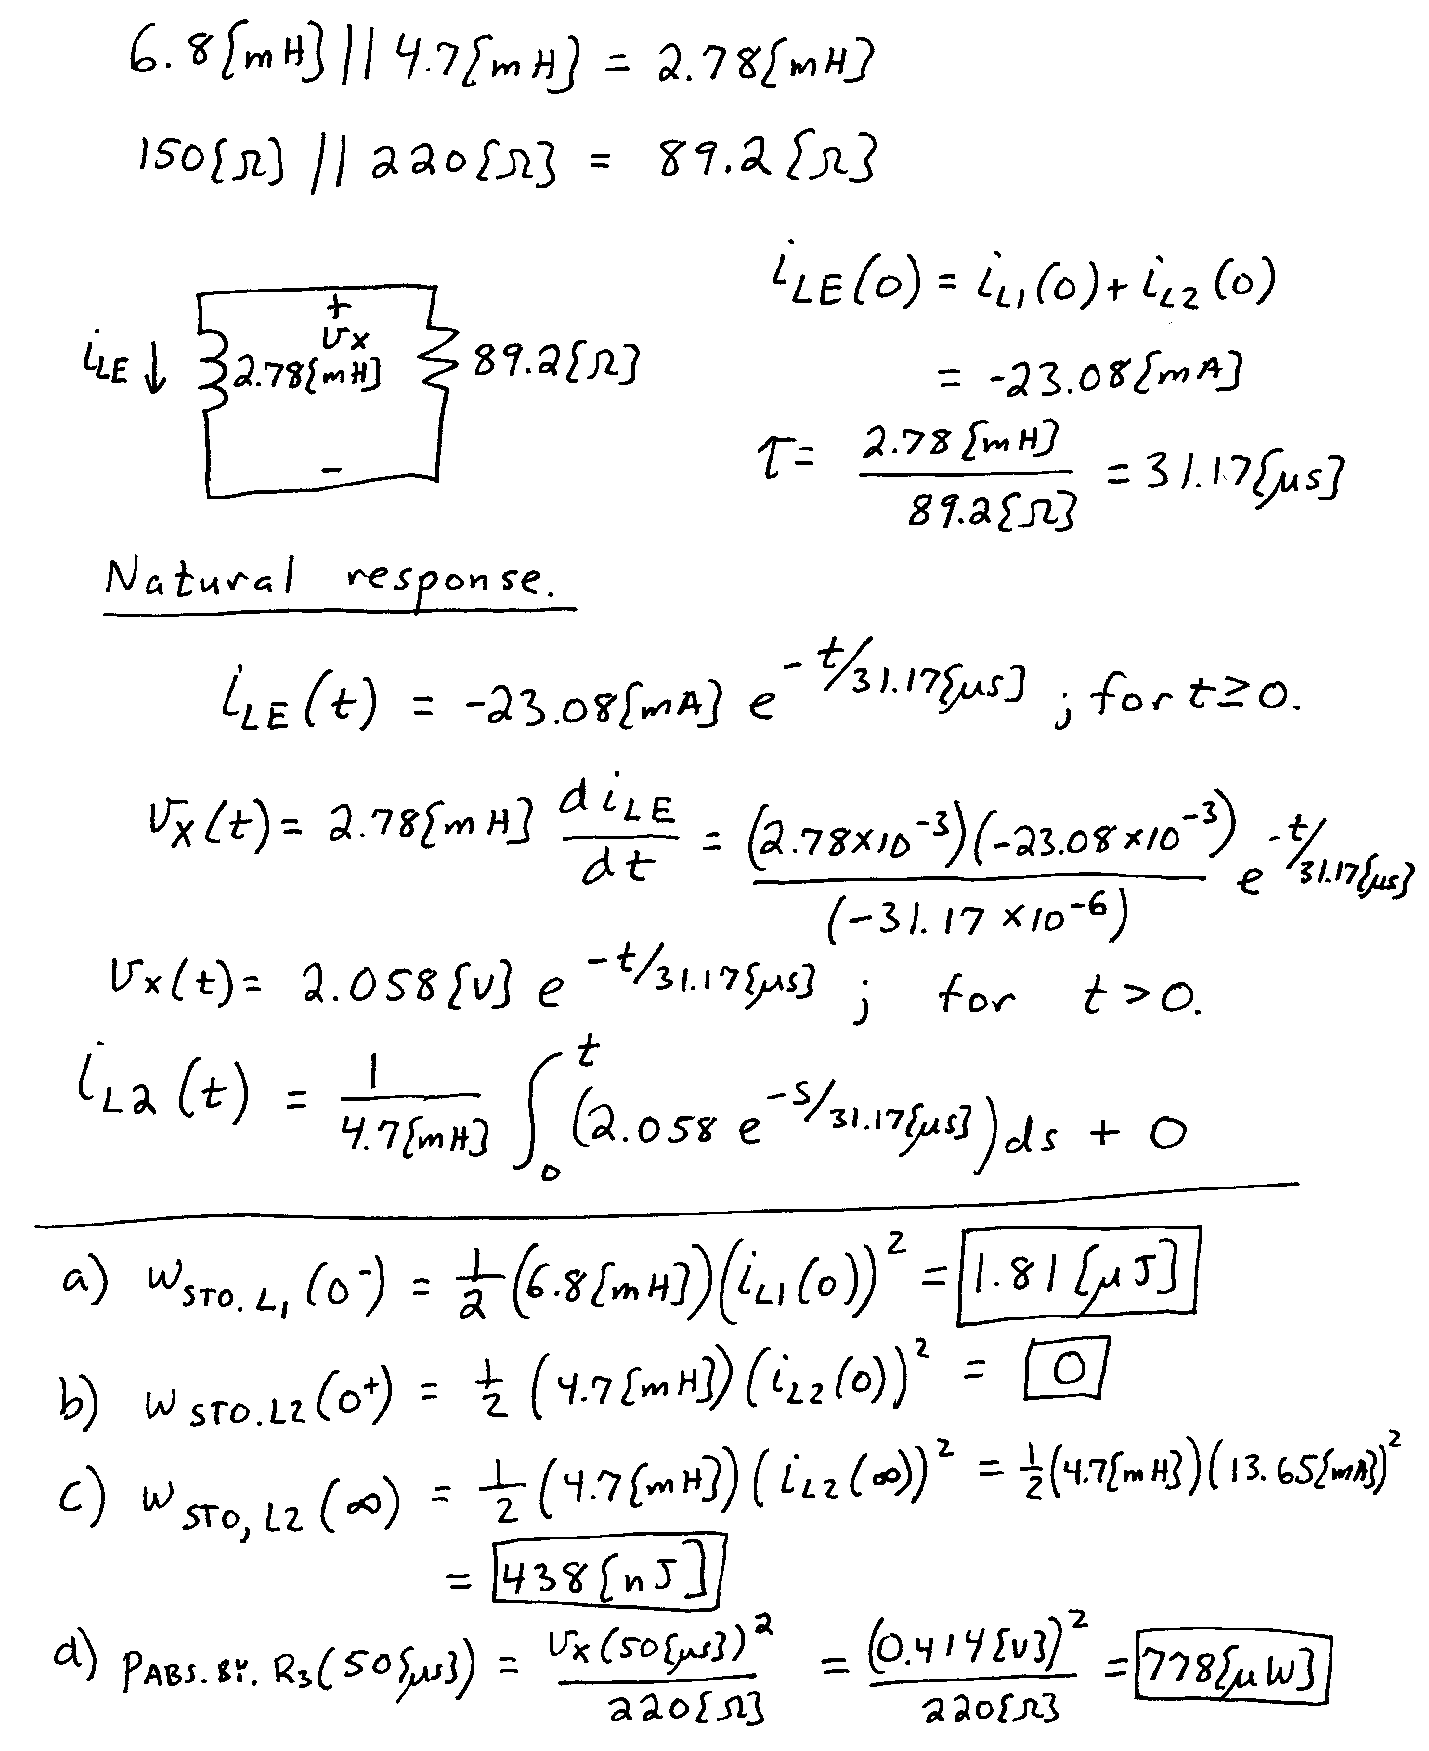 6.8{mH} || 4.7{mH} = 2.78{mH}
150{Ω} || 220{Ω} = 89.2{Ω}
iLE ↓ 2.78{mH} + vx - 89.2{Ω}
iLE(0) = iL1(0) + iL2(0)
= -23.08{mA}
τ = 2.78{mH} / 89.2{Ω} = 31.17{μs}
Natural response.
iLE(t) = -23.08{mA} e^(-t/31.17{μs}) ; for t≥0.
vx(t) = 2.78{mH} diLE/dt = (2.78×10^-3)(-23.08×10^-3) / (-31.17×10^-6) e^(-t/31.17{μs})
vx(t) = 2.058{v} e^(-t/31.17{μs}) ; for t>0.
iL2(t) = 1/4.7{mH} ∫_0^t (2.058 e^(-s/31.17{μs})) ds + 0
a) wSTO.L1(0^-) = 1/2 (6.8{mH})(iL1(0))^2 = 1.81{μJ}
b) wSTO.L2(0^+) = 1/2 (4.7{mH})(iL2(0))^2 = 0
c) wSTO,L2(∞) = 1/2 (4.7{mH})(iL2(∞))^2 = 1/2 (4.7{mH})(13.65{mA})^2
= 438{nJ}
d) PABS.BY.R3(50{μs}) = vx(50{μs})^2 / 220{Ω} = (0.414{v})^2 / 220{Ω} = 778{μW}